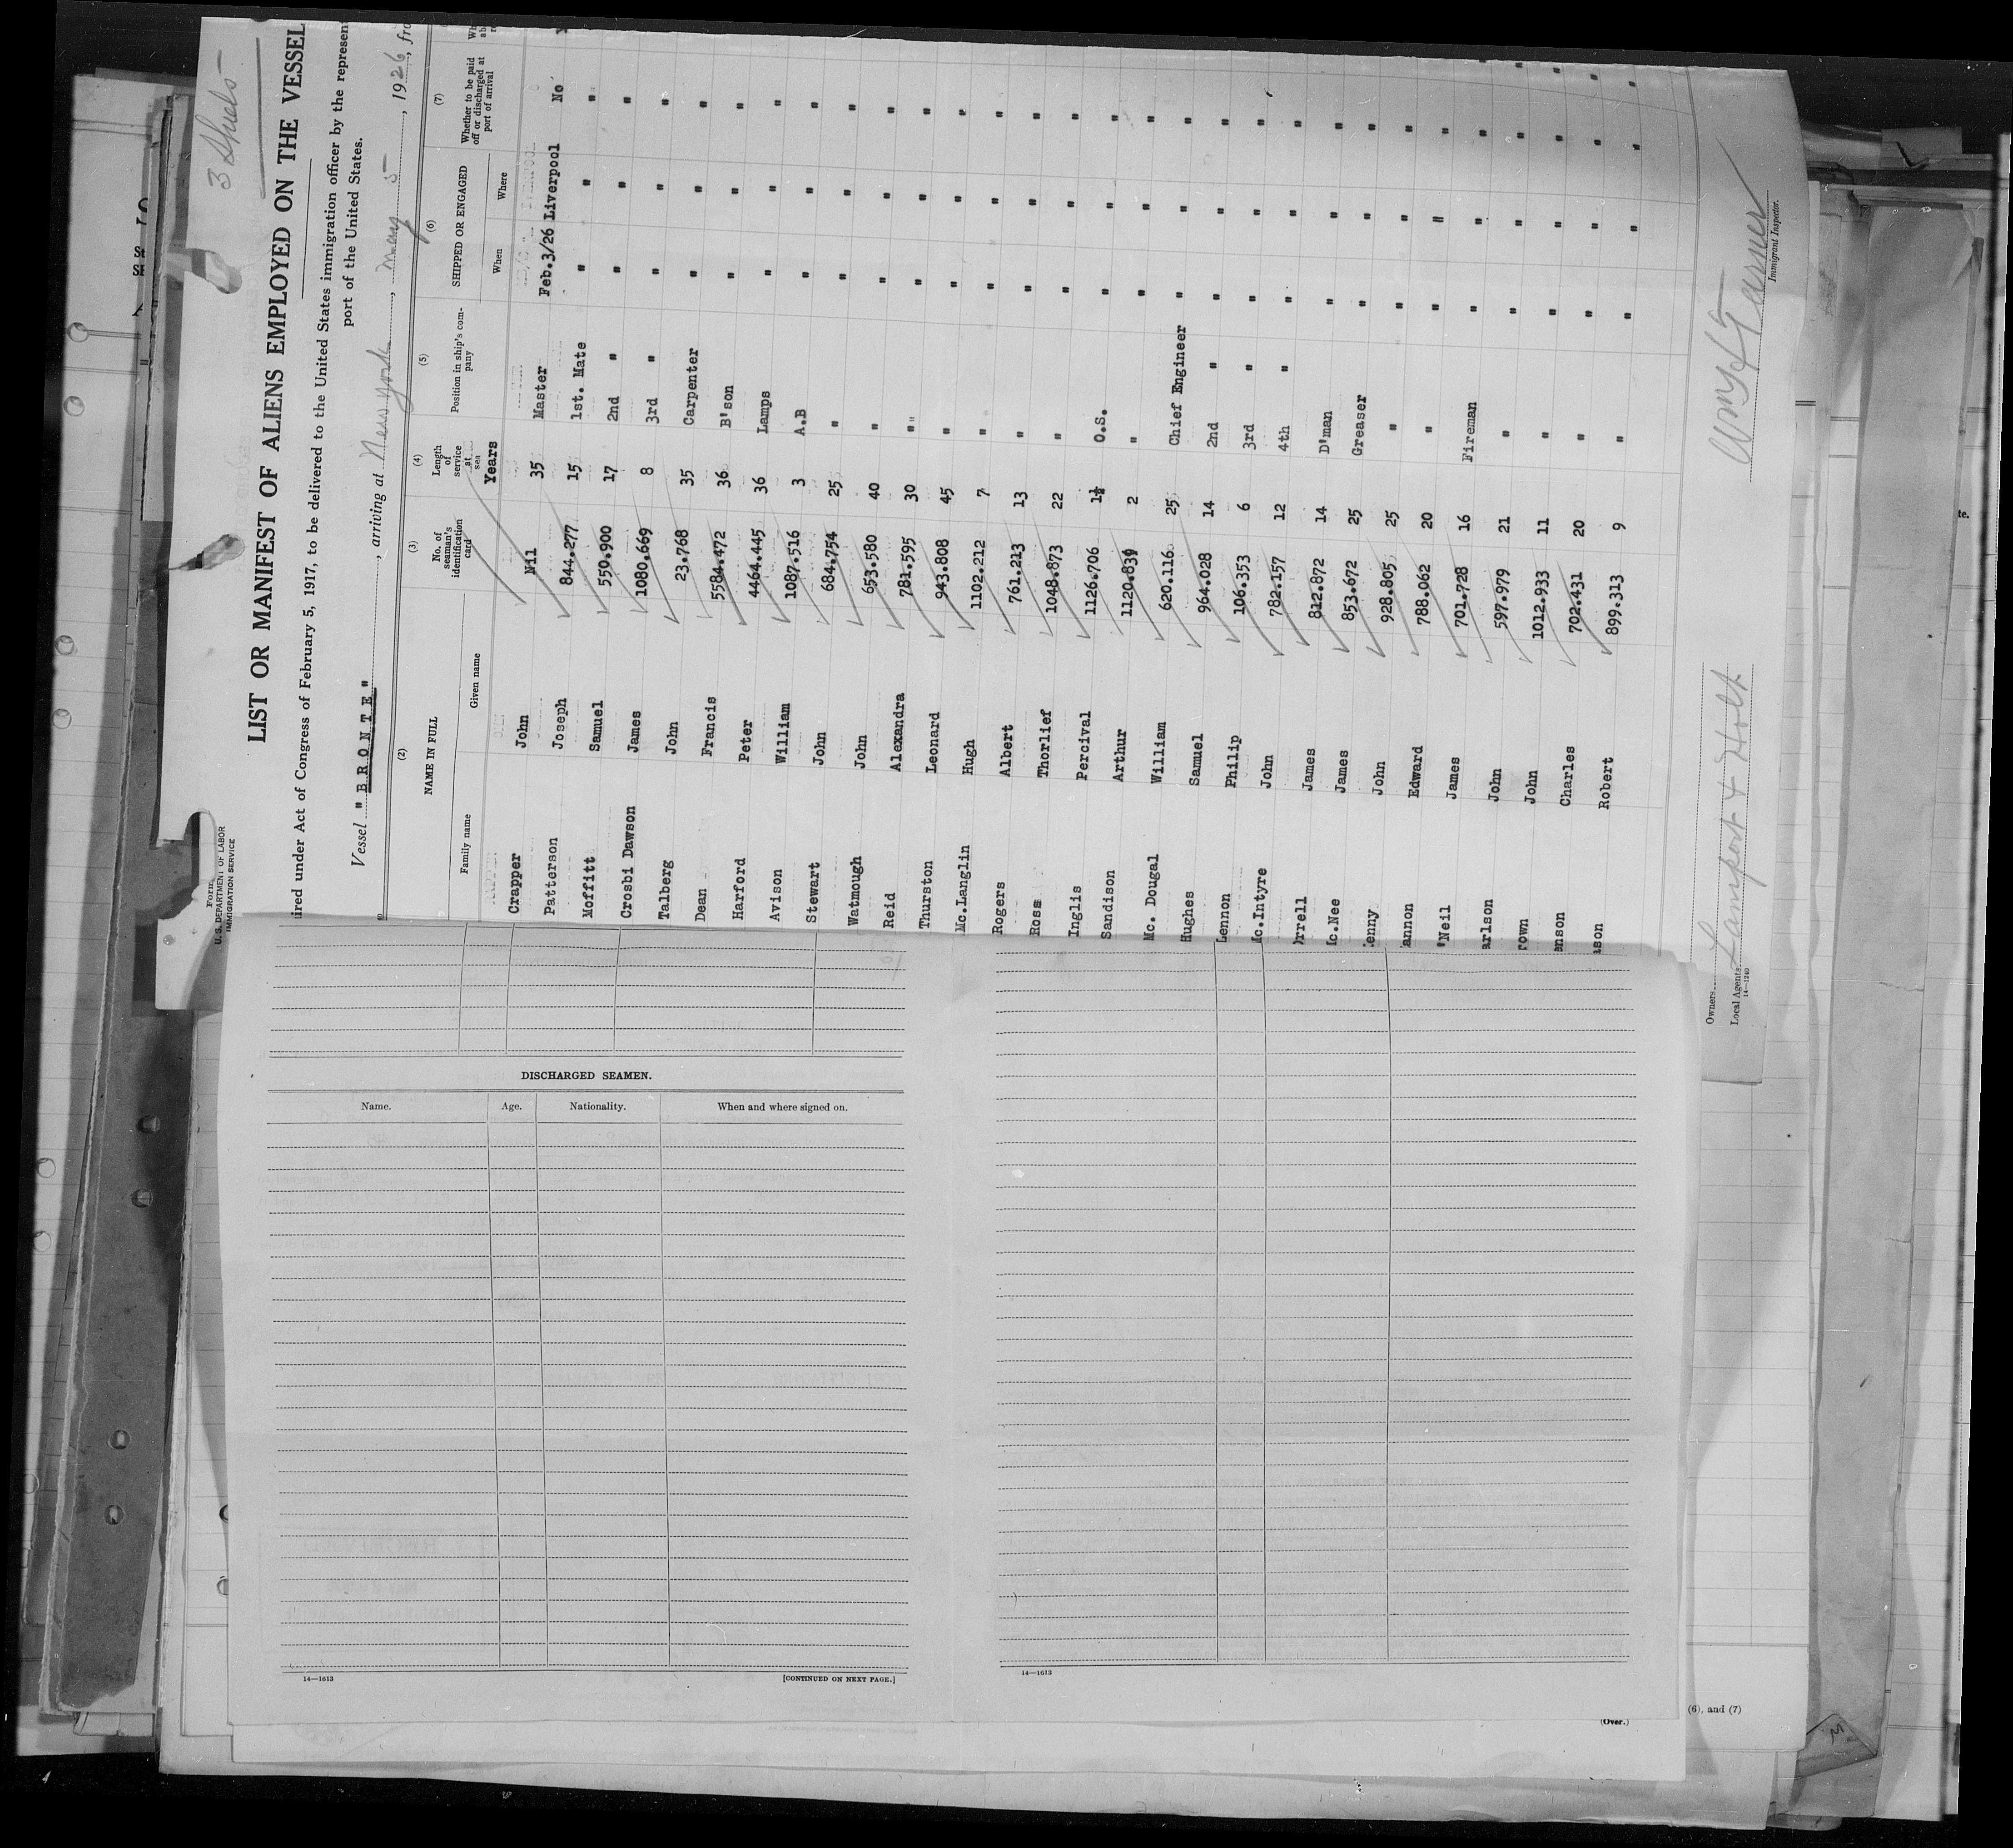 3 Sheets
Form
U. S. DEPARTMENT OF LABOR
IMMIGRATION SERVICE
LIST OR MANIFEST OF ALIENS EMPLOYED ON THE VESSEL
ired under Act of Congress of February 5, 1917, to be delivered to the United States immigration officer by the represen
port of the United States.
Vessel "BRONTE", arriving at New York, May 5, 1926, fro
(2) (3) (4) (5) (6) (7)
NAME IN FULL No. of seaman's identification card Length of service at sea Position in ship's company SHIPPED OR ENGAGED Whether to be paid off or discharged at port of arrival
Family name Given name When Where
Years
Crapper John Nil 35 Master Feb.3/26 Liverpool No
Patterson Joseph 844.277 15 1st. Mate " " "
Moffitt Samuel 550.900 17 2nd " " " "
Crosbi Dawson James 1080.669 8 3rd " " " "
Talberg John 23.768 35 Carpenter " " "
Dean Francis 5584.472 36 B'son " " "
Harford Peter 4464.445 36 Lamps " " "
Avison William 1087.516 3 A.B " " "
Stewart John 684.754 25 " " " "
Watmough John 653.580 40 " " " "
Reid Alexandra 781.595 30 " " " "
Thurston Leonard 943.808 45 " " " "
Mc.Langlin Hugh 1102.212 7 " " " "
Rogers Albert 761.213 13 " " " "
Ross Thorlief 1048.873 22 " " " "
Inglis Percival 1126.706 1½ O.S. " " "
Sandison Arthur 1120.839 2 " " " "
Mc. Dougal William 620.116 25 Chief Engineer " " "
Hughes Samuel 964.028 14 2nd " " " "
Lennon Philip 106.353 6 3rd " " " "
Mc.Intyre John 782.157 12 4th " " " "
rrell James 812.872 14 D'man " " "
Mc.Nee James 853.672 25 Greaser " " "
enny John 928.805 25 " " " "
annon Edward 788.062 20 " " " "
'Neil James 701.728 16 Fireman " " "
arlson John 597.979 21 " " " "
rown John 1012.933 11 " " " "
enson Charles 702.431 20 " " " "
son Robert 899.313 9 " " " "
Owners
Local Agents Lamport & Holt
14—1240
Immigrant Inspector.
DISCHARGED SEAMEN.
Name. Age. Nationality. When and where signed on.
14—1613 [CONTINUED ON NEXT PAGE.]
14—1613
(Over.)
(6), and (7)